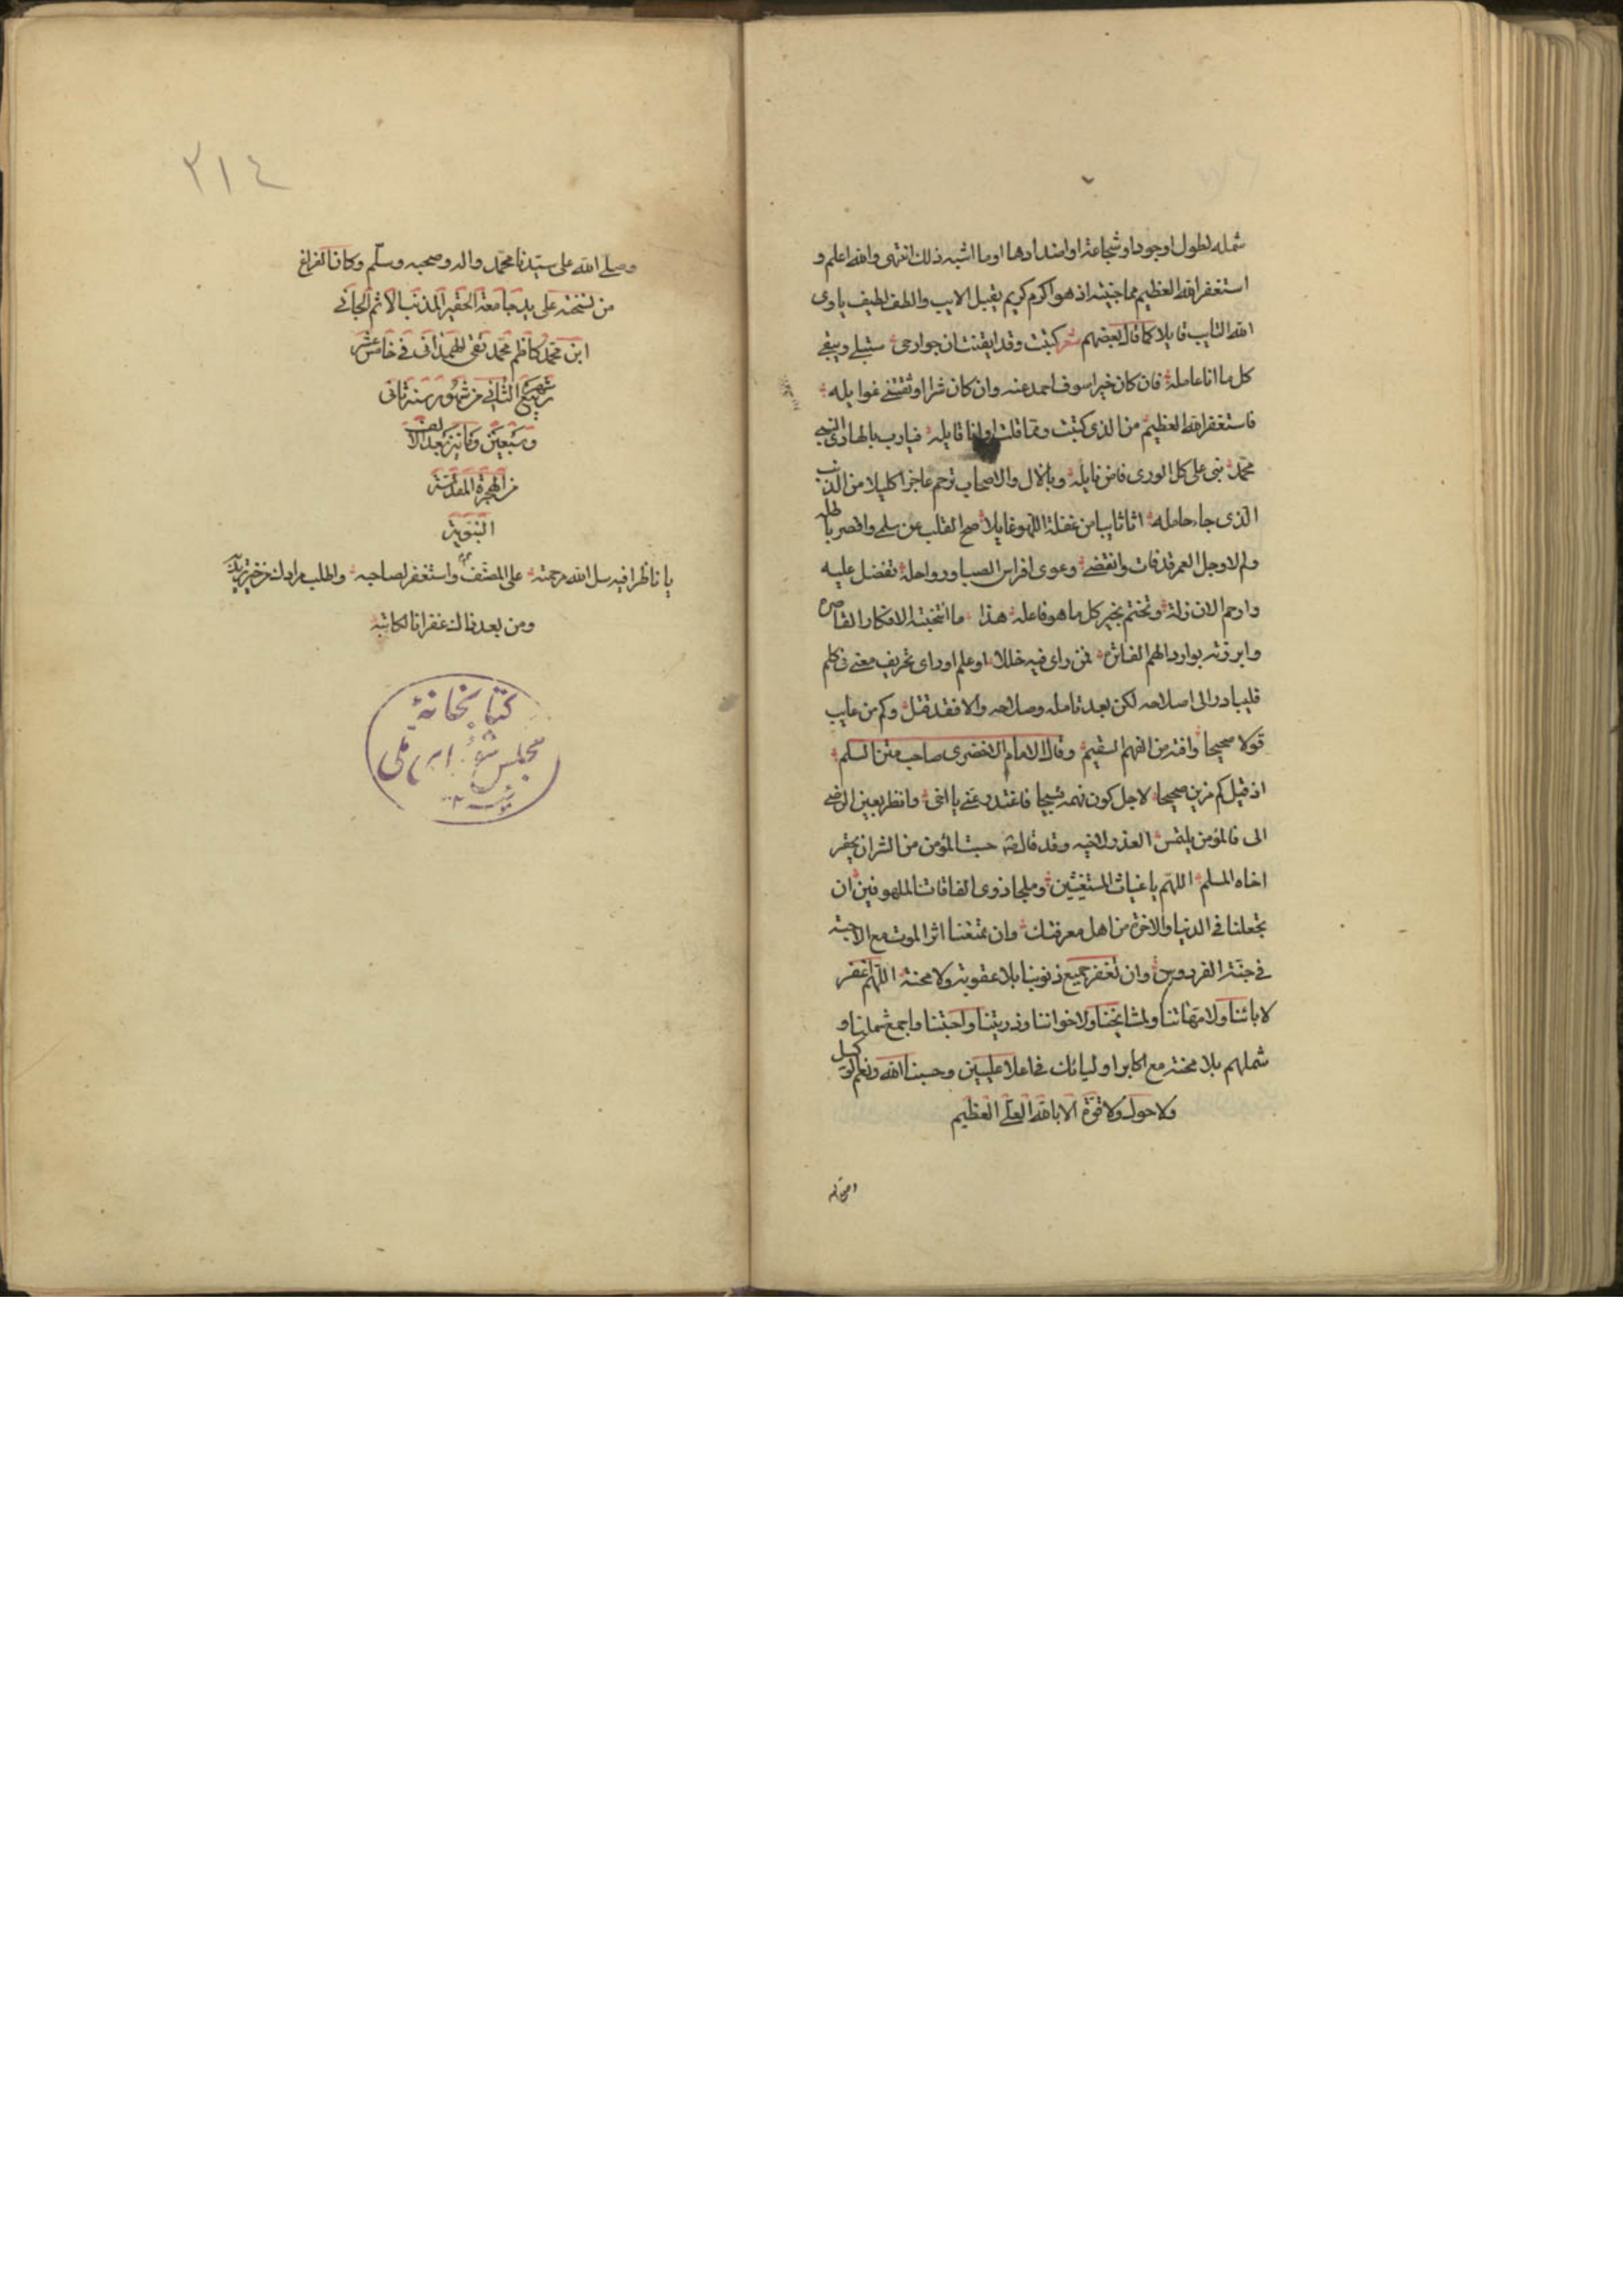 شمله لطول اوجود او شجاعة او اضدادها او ما اشبه ذلك انتهى والله اعلم و
استغفر الله العظيم مما جنيته اذ هو اكرم كريم يقبل الايب والطف لطيف ياوى
الله التايب قايلا كما قال بعضهم شعر كتبت وقد ايقنت ان جوارحى ستبلى ويبقى
كل ما انا عامله فان كان خيرا سوف احمد عنه وان كان شرا اوثقتنى غوايله
فاستغفر الله العظيم من الذى كتبت ومما قلت او انا قايله فيارب بالهادى النبى
محمد نبى على كل الورى فاض نايله وبالال والاصحاب ترحم عاجزا كليلا من الذنب
الذى جاء حامله اتا تايبا من غفلة اللهو غايلا صحا القلب عن سلمى واقصر باطله
ولم لا وجل العمر قد فات وانقضى وعرى افراس الصبا ورواحله تفضل عليه
وارحم الان زلة وتختم بخير كل ما هو فاعله هذا ما انتخبته الافكار القاصره
وابرزته بوارد الهمم الفاتره فمن راى فيه خللا او علم او راى تحريف معنى فى كلم
فليبادر الى اصلاحه لكن بعد تامله وصلاحه والا فقد قيل وكم من عايب
قولا صحيحا وافته من الفهم السقيم وقال الامام الاخضرى صاحب متن السلم
اذ قيل كم مزيف صحيحا لاجل كون فهمه قبيحا فاعتذر عنى يا اخى وانظر بعين الرضى
الى فالمؤمن يلتمس العذر لاخيه وقد قال حسب المؤمن من الشر ان يحقر
اخاه المسلم اللهم يا غياث المستغيثين وملجا ذوى الفاقات الملهوفين ان
تجعلنا فى الدنيا والاخرة من اهل معرفتك وان تمتعنا اثر الموت مع الاحبته
فى جنة الفردوس وان تغفر جميع ذنوبنا بلا عقوبة ولا محنة اللهم اغفر
لابائنا ولامهاتنا ولمشايخنا ولاخواننا وذريتنا واحبتنا واجمع شملنا و
شملهم بلا محنة مع اكابر اوليائك فى اعلا عليين وحسبنا الله ونعم الوكيل
ولا حول ولا قوة الا بالله العلى العظيم
٢١٤
وصلى الله على سيدنا محمد واله وصحبه وسلم وكان الفراغ
من نسخته على يد جامعه الحقير المذنب الاثم الجانى
ابن محمد كاظم محمد تقى الهمدانى فى خامس عشر
شهر ربيع الثانى من شهور سنة ثانى
وسبعين ومائتين بعد الالف
من الهجرة المقدسة
النبوية
يا ناظرا فيه سل الله مرحمة على المصنف واستغفر لصاحبه واطلب مرادك من خير تريد به
ومن بعد ذالك غفرانا لكاتبه
كتابخانهٔ
مجلس شوراى ملى